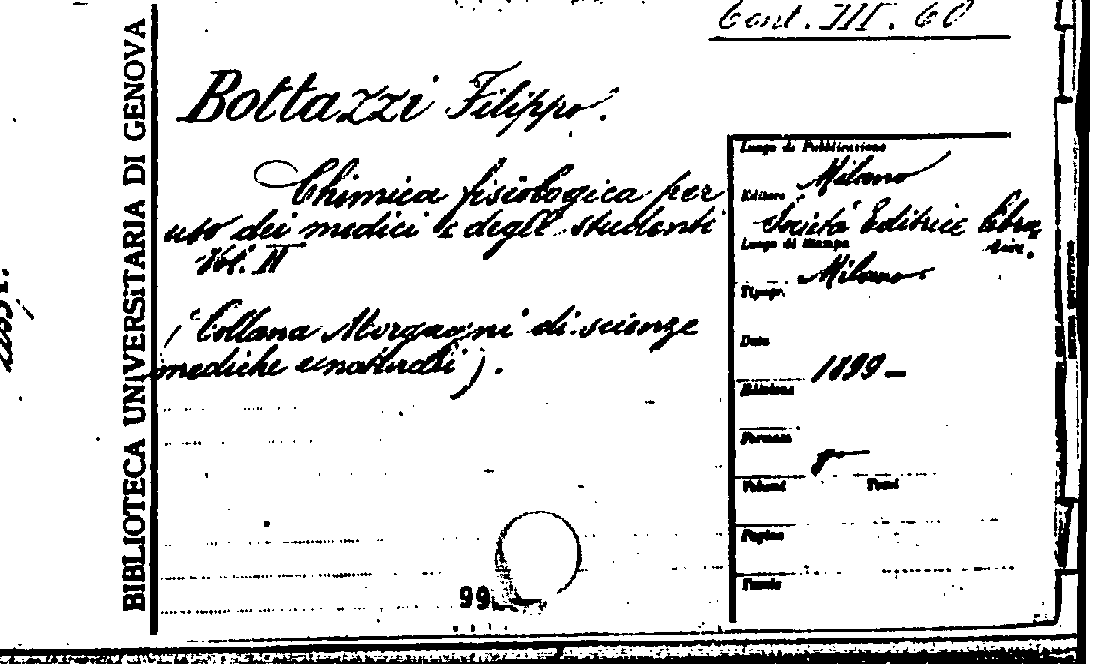 Cont. III. 60
BIBLIOTECA UNIVERSITARIA DI GENOVA
Bottazzi Filippo.
Chimica fisiologica per
uso dei medici e degli studenti
Vol. II
(Collana Morgagni di scienze
mediche e naturali).
Luogo di Pubblicazione
Milano
Editore
Società Editrice Libra
ria.
Luogo di Stampa
Milano
Tipogr.
Data
1899
Edizione
Formato
8
Volumi Tomi
Pagine
Tavole
99